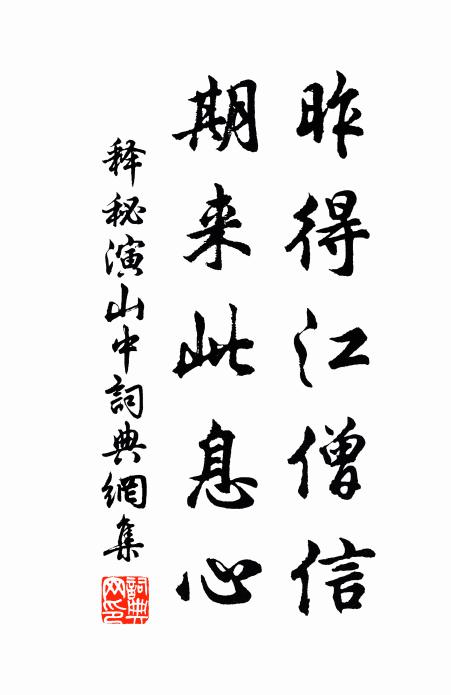 昨得江僧信
期来此息心
释秘演山中詞典網集
詞典